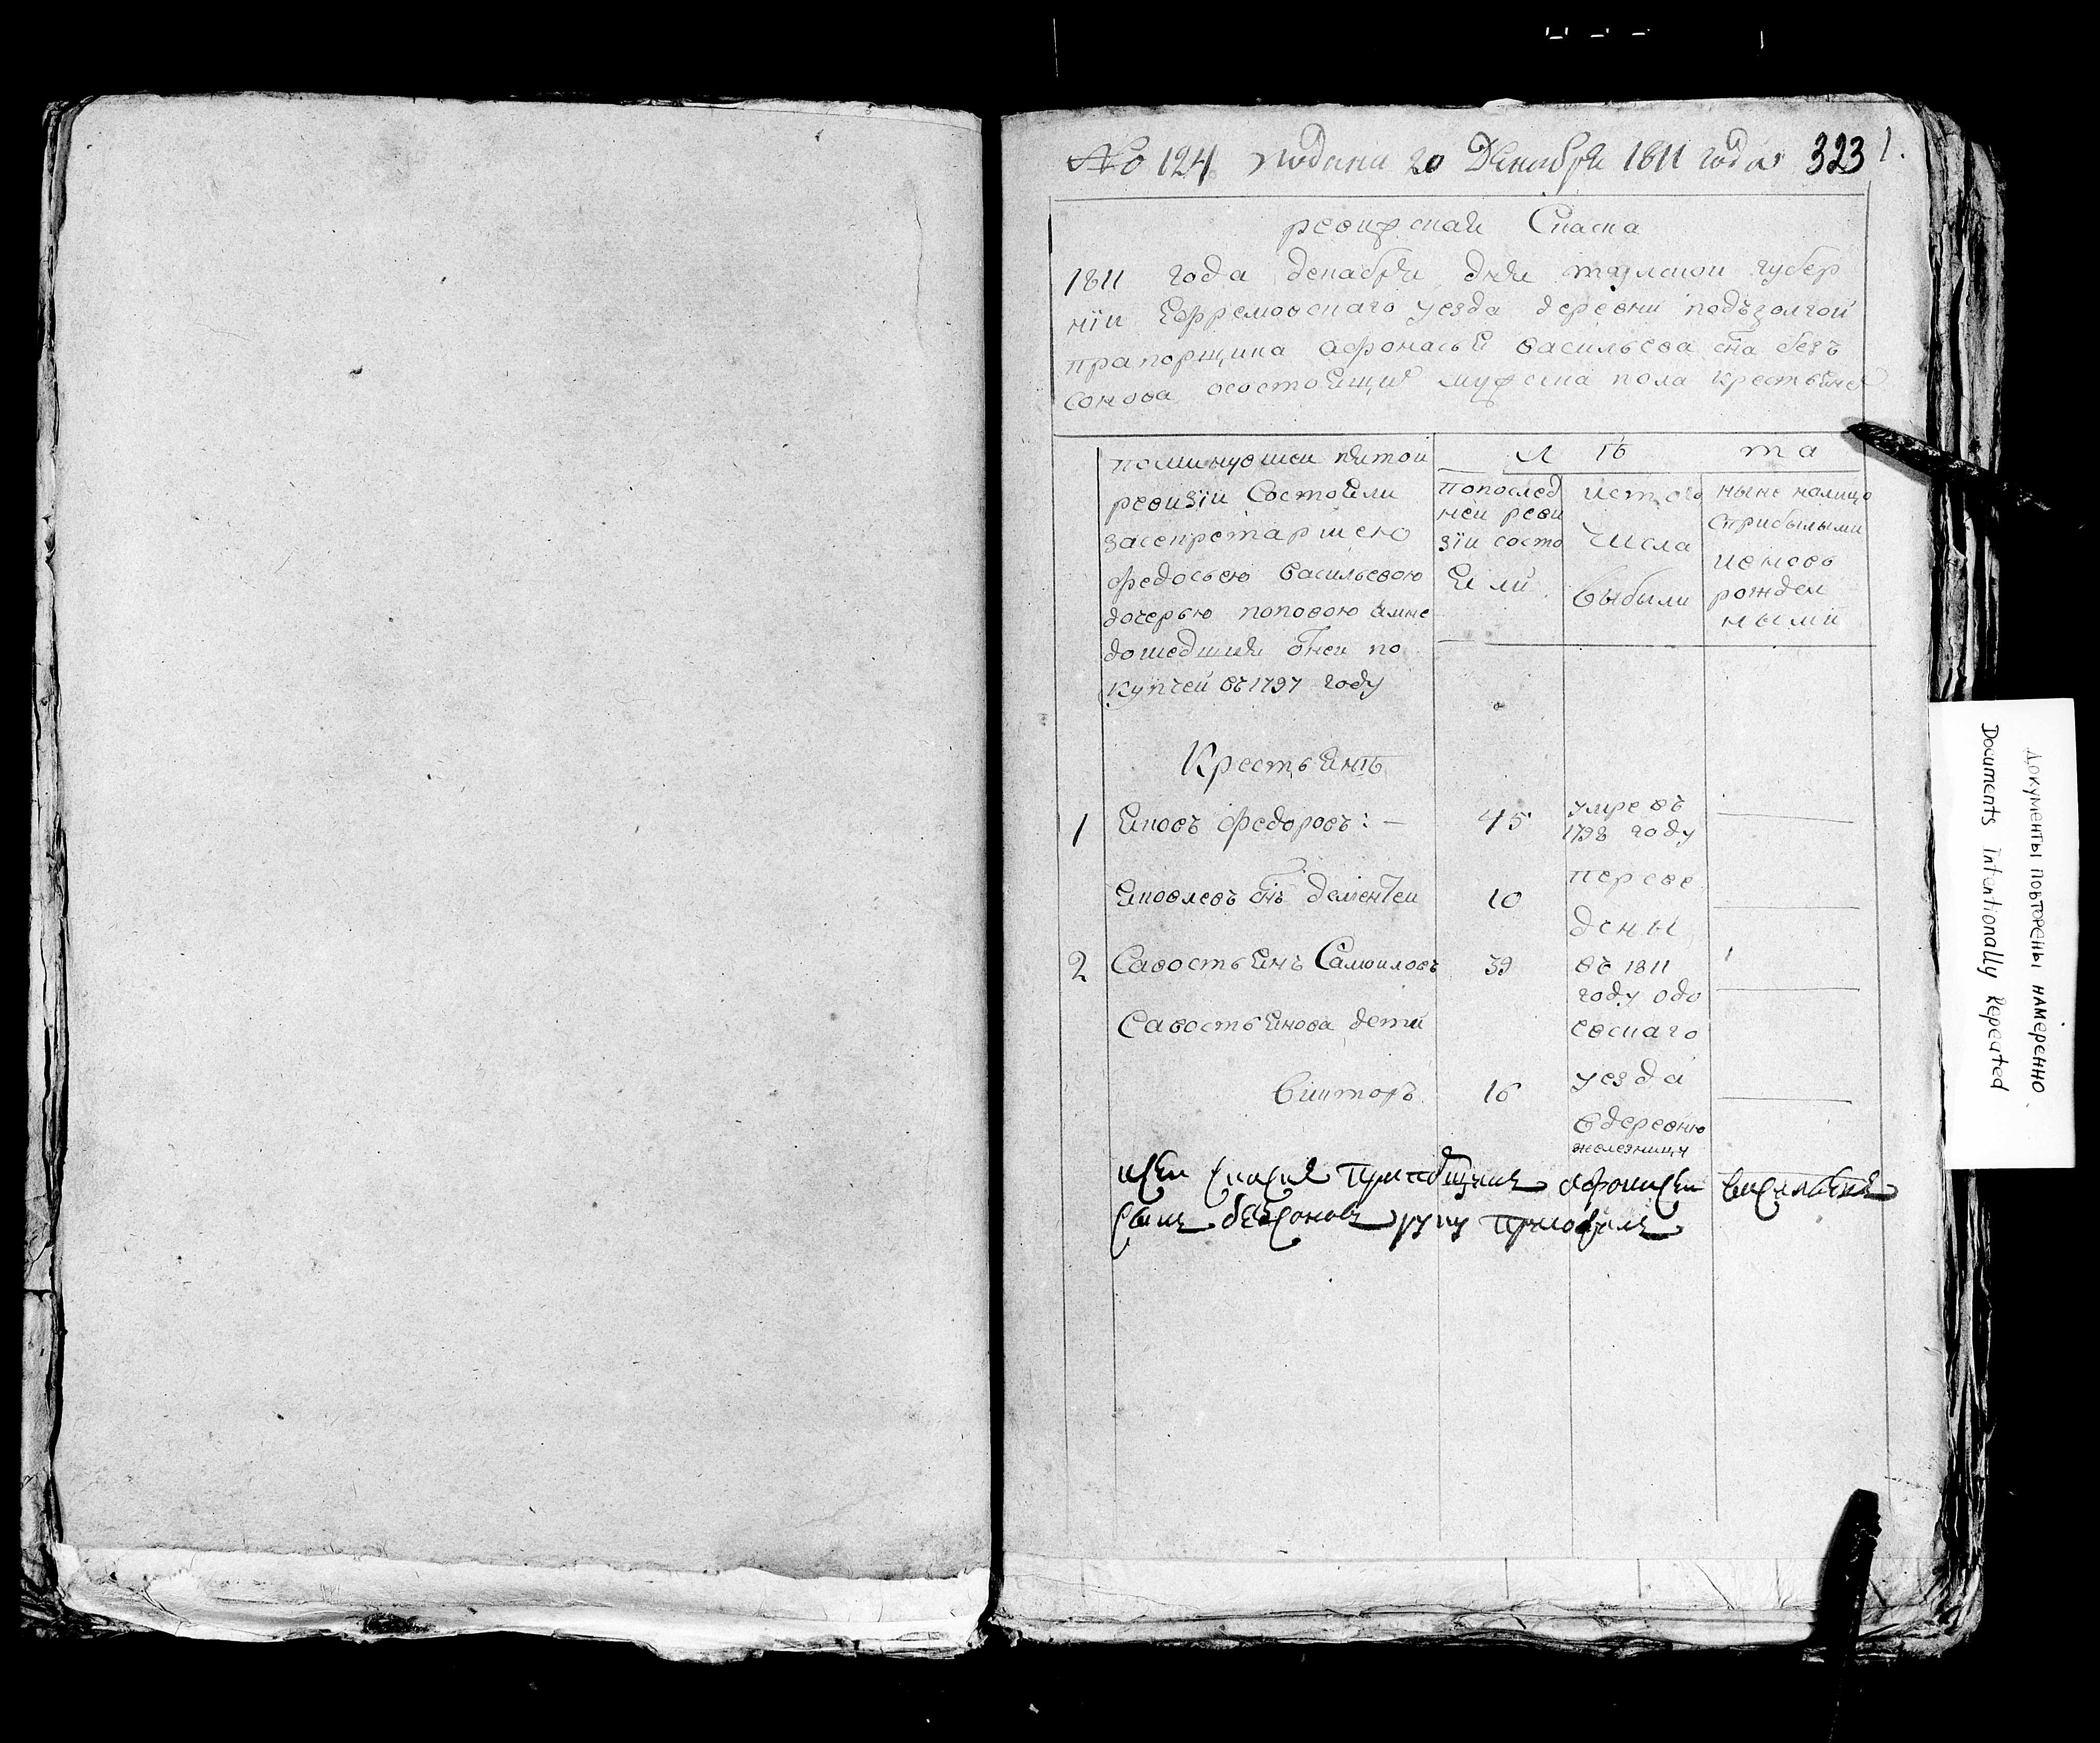 № 124 подана 20 Декабря 1811 года 323 1.
ревижская Скаска
1811 года декабря дня тулскои губер
нïи Ефремовскаго уезда деревни подъ
прапорщика афонасья васильева сна безъ
сонова осостоящих мужеска пола крестьяне
поминувшеи пятои
ревизïи Состояли
засекретаршею
федосьею васильевою
дочерью поповою амне
дошедшия отнеи по
купчей въ 1797 году
л ѣ та
попослед
неи реви
зïи состо
яли
истого
числа
выбыли
ныне налицо
сприбылыми
ивновь
рожден
ными
Крестьянѣ
1 Яковъ федоровъ: — 45 умре въ
1798 году
Яковлевъ снъ дементеи 10 переве
дены
2 Савостьянъ Самоиловъ 39 въ 1811
году одо
Савостьянова дети евскаго
уезда
викторъ 16
вдеревню
железницу
ксеи скаске прапорщикъ афонасеи васильевъ
сынъ безсоновъ руку приложилъ
Документы повторены намеренно
Documents Intentionally Repeated